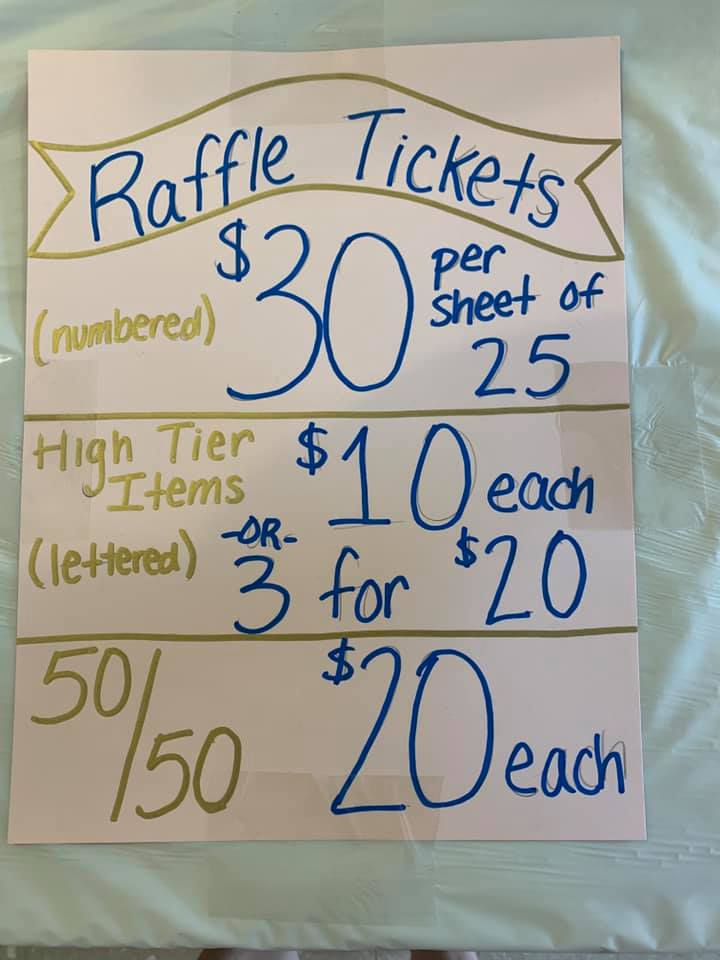 Raffle Tickets
(numbered) $30 per sheet of 25
High Tier Items $10 each
(lettered) -OR- 3 for $20
50/50 $20 each